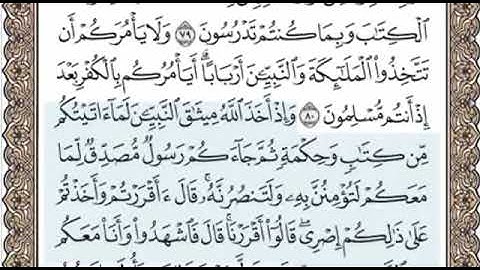 ٱلْكِتَٰبَ وَبِمَا كُنتُمْ تَدْرُسُونَ ٧٩ وَلَا يَأْمُرَكُمْ أَن
تَتَّخِذُوا۟ ٱلْمَلَٰٓئِكَةَ وَٱلنَّبِيِّۦنَ أَرْبَابًا ۗ أَيَأْمُرُكُم بِٱلْكُفْرِ بَعْدَ
إِذْ أَنتُم مُّسْلِمُونَ ٨٠ وَإِذْ أَخَذَ ٱللَّهُ مِيثَٰقَ ٱلنَّبِيِّۦنَ لَمَآ ءَاتَيْتُكُم
مِّن كِتَٰبٍ وَحِكْمَةٍ ثُمَّ جَآءَكُمْ رَسُولٌ مُّصَدِّقٌ لِّمَا
مَعَكُمْ لَتُؤْمِنُنَّ بِهِۦ وَلَتَنصُرُنَّهُۥ ۚ قَالَ ءَأَقْرَرْتُمْ وَأَخَذْتُمْ
عَلَىٰ ذَٰلِكُمْ إِصْرِى ۖ قَالُوٓا۟ أَقْرَرْنَا ۚ قَالَ فَٱشْهَدُوا۟ وَأَنَا۠ مَعَكُم